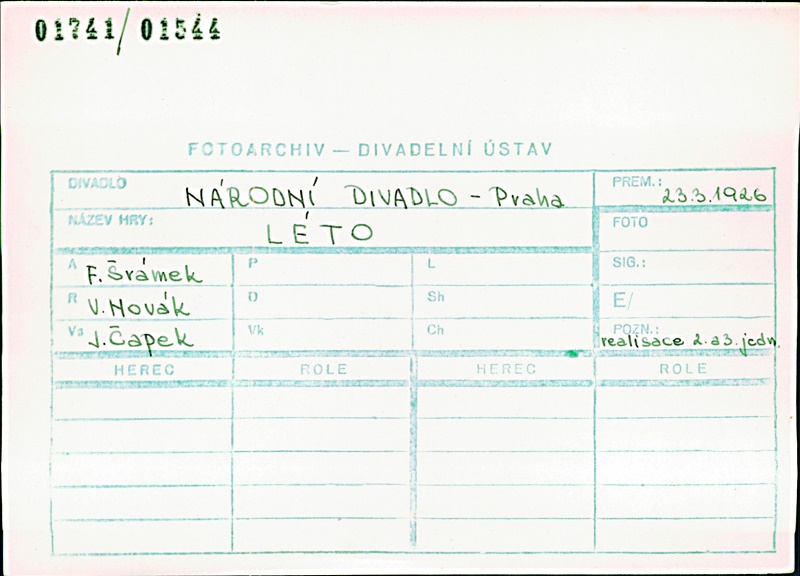 01741/01544
FOTOARCHIV — DIVADELNÍ ÚSTAV
DIVADLO NÁRODNÍ DIVADLO - Praha
PREM.: 23.3.1926
NÁZEV HRY: LÉTO
FOTO
A F. Šrámek P L
SIG.:
R V. Novák D Sh
E/
Vs J. Čapek Vk Ch
POZN.: realisace 2. a 3. jedn.
HEREC ROLE HEREC ROLE